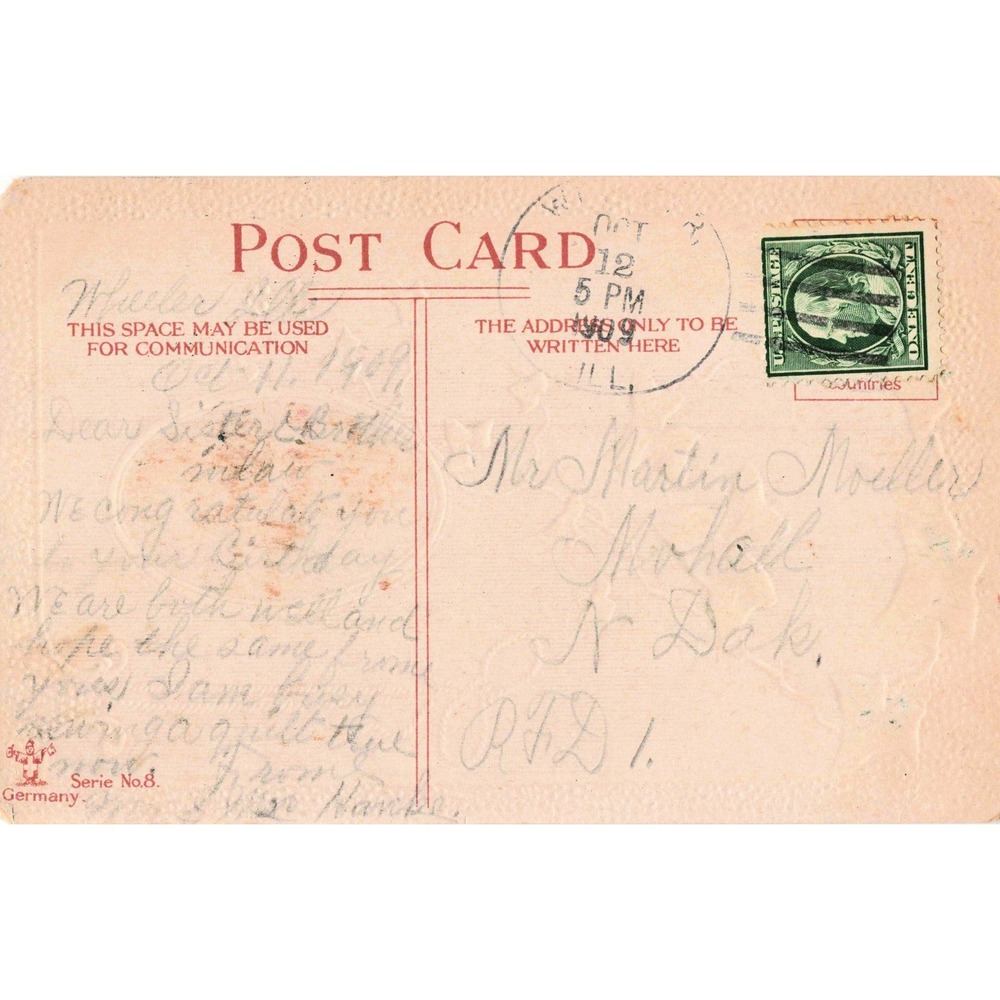 POST CARD
THIS SPACE MAY BE USED
FOR COMMUNICATION
THE ADDRESS ONLY TO BE
WRITTEN HERE
OCT
12
5 PM
1909
ILL.
U.S. POSTAGE
ONE CENT
Countries
Wheeler Ills
Oct. 11. 1909,
Dear Sister & Brother
inlaw
We congratulate you
to your Birthday
We are both well and
hope the same from
you I am busy
sewing a quilt
now. From
Mr. & Mr
Mr Martin Moeller
Mohall
N Dak.
RFD 1.
Serie No. 8.
Germany.